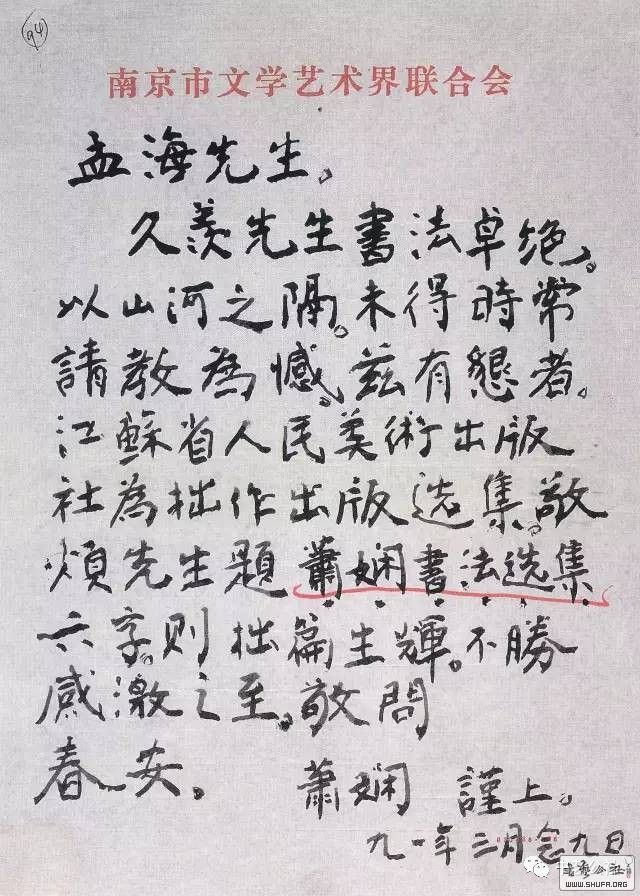 94
南京市文学艺术界联合会
孟海先生。
久羡先生書法卓绝。
以山河之隔。未得時常
請教為憾。兹有懇者。
江蘇省人民美術出版
社為拙作出版选集。敬
煩先生題蕭娴書法选集
六字。则拙篇生輝。不勝
感激之至。敬問
春安。
蕭娴 謹上。
九一年三月念九日
WWW.SHUFA.ORG